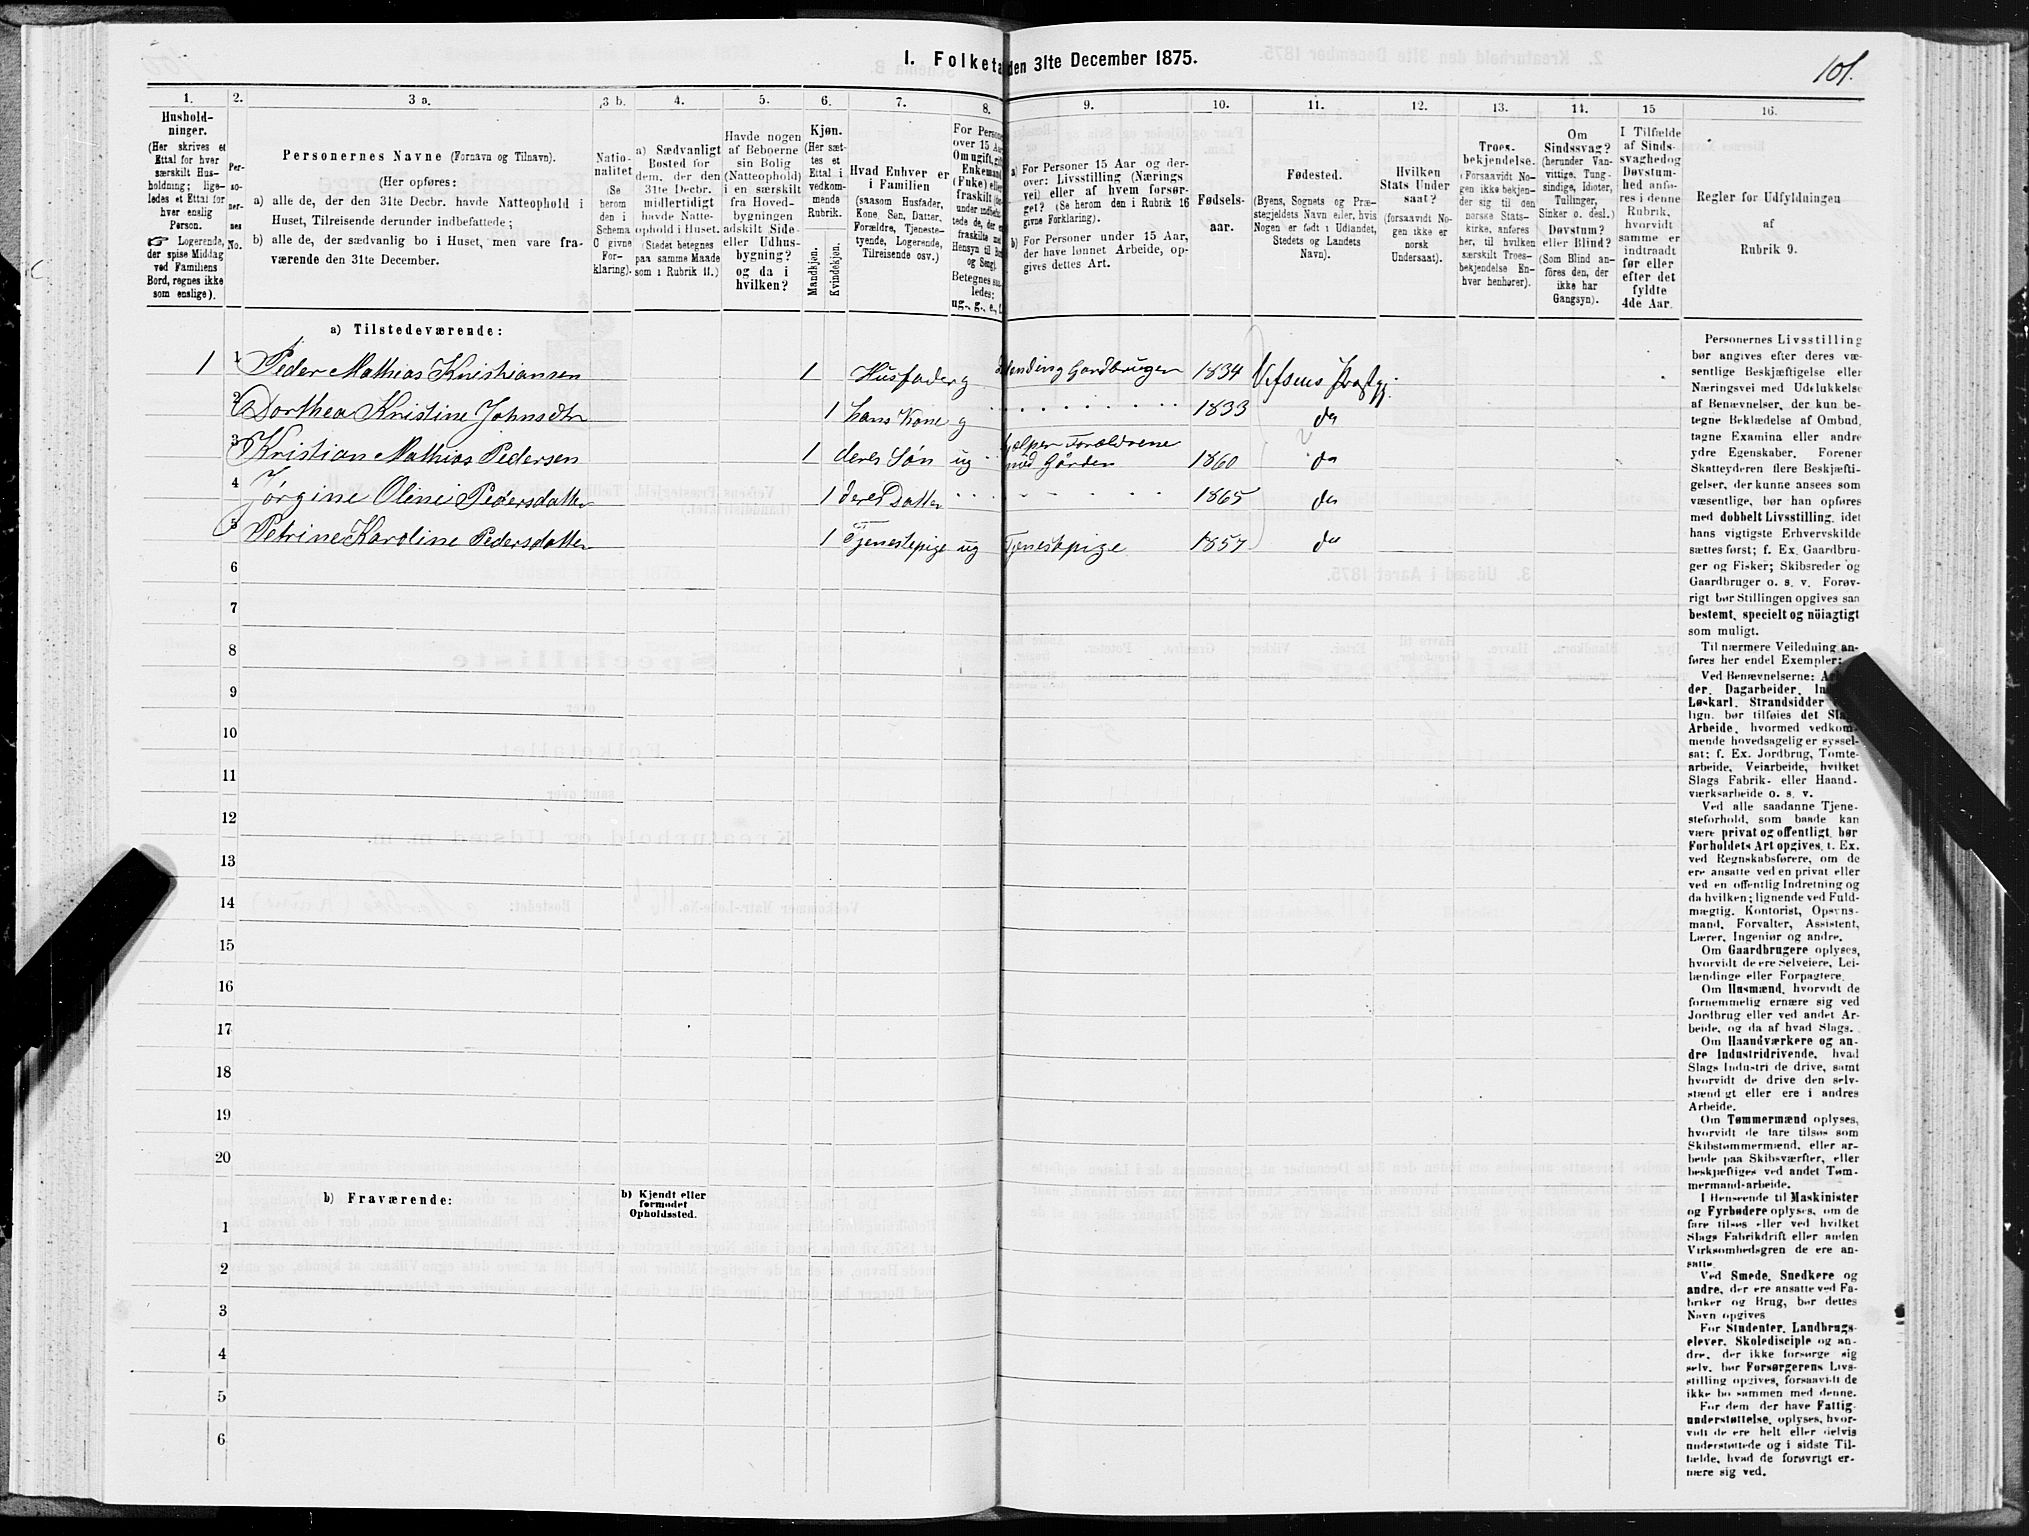 101.
I. Folketa den 31te December 1875.
1. 2. 3 a. 3 b. 4. 5. 6. 7. 8. 9. 10. 11. 12. 13. 14. 15 16.
Hushold-
ninger.
(Her skrives et
Ettal for hver
særskilt Hus-
holdning; lige-
ledes et Ettal for
hver enslig
Person.
☞ Logerende,
der spise Middag
ved Familiens
Bord, regnes ikke
som enslige).
Per-
so-
ner-
nes
No.
Personernes Navne (Fornavn og Tilnavn).
(Her opføres:
a) alle de, der den 31te Decbr. havde Natteophold i
Huset, Tilreisende derunder indbefattede;
b) alle de, der sædvanlig bo i Huset, men vare fra-
værende den 31te December.
Natio-
nalitet
(Se
herom
den i
Schema
C givne
For-
klaring).
a) Sædvanligt
Bosted for
dem, der den
31te Decbr.
midlertidigt
havde Natte-
ophold i Huset.
(Stedet betegnes
paa samme Maade
som i Rubrik 11.)
Havde nogen
af Beboerne
sin Bolig
(Natteophold)
i en særskilt
fra Hoved-
bygningen
adskilt Side-
eller Udhus-
bygning?
og da i
hvilken?
Kjøn.
(Her sæt-
tes et
Ettal i
vedkom-
mende
Rubrik.
Mandkjøn.
Kvindekjøn.
Hvad Enhver er
i Familien
(saasom Husfader,
Kone, Søn, Datter,
Forældre, Tjeneste-
tyende, Logerende,
Tilreisende osv.)
For Persone
over 15 Aa
Om ugift, gif
Enkemand
(Enke) elle
fraskilt
Betegnes saa-
ledes:
ug., g., e.,
a) For Personer 15 Aar og der-
over: Livsstilling (Nærings
vei) eller af hvem forsør-
get? (Se herom den i Rubrik 16
givne Forklaring).
b) For Personer under 15 Aar,
der have lønnet Arbeide, op-
gives dettes Art.
Fødsels-
aar.
Fødested.
(Byens, Sognets og Præ-
stegjeldets Navn eller, hvis
Nogen er født i Udlandet,
Stedets og Landets
Navn).
Hvilken
Stats Under
saat?
(forsaavidt No-
gen ikke er
norsk
Undersaat).
Troes-
bekjendelse.
(Forsaavidt No-
gen ikke bekjen-
der sig til den
norske Stats-
kirke, anføres
her, til hvilken
særskilt Troes-
bekjendelse En-
hver henhører).
Om
Sindssvag?
(herunder Van-
vittige, Tung-
sindige, Idioter,
Tullinger,
Sinker o. desl.)
Døvstum?
eller Blind?
(Som Blind an-
føres den, der
ikke har
Gangsyn).
I Tilfælde
af Sinds-
svaghed og
Døvstum-
hed anfø-
res i denne
Rubrik,
hvorvidt
samme er
indtraadt
før eller
efter det
fyldte
4de Aar.
Regler for Udfyldningen
af
Rubrik 9.
a) Tilstedeværende:
1 1 Peder Mathias Kristiansen 1 Husfader g Gardbruger 1834 Vefsens Præstgj:
2 Dorthea Kristine Johnsdtr 1 hans Kone g 1833 do
3 Kristian Mathias Pedersen 1 deres Søn ug hjælper Forældrene
med Gården 1860 do
4 Jørgine Oline Pedersdatter 1 deres Datter 1865 do
5 Petrine Karoline Pedersdatter 1 Tjenestepige ug Tjenestepige 1857 do
6
7
8
9
10
11
12
13
14
15
16
17
18
19
20
b) Fraværende:
b) Kjendt eller
formodet
Opholdssted.
1
2
3
4
5
6
Personernes Livsstilling
bør angives efter deres væ-
sentlige Beskjæftigelse eller
Næringsvei med Udelukkelse
af Benævnelser, der kun be-
tegne Beklædelse af Ombud,
tagne Examina eller andre
ydre Egenskaber. Forener
Skatteyderen flere Beskjæfti-
gelser, der kunne ansees som
væsentlige, bør han opføres
med dobbelt Livsstilling, idet
hans vigtigste Erhvervskilde
sættes først; f. Ex. Gaardbru-
ger og Fisker; Skibsreder og
Gaardbruger o. s. v. Forøv-
rigt bør Stillingen opgives saa
bestemt, specielt og nöiagtigt
som muligt.
Til nærmere Veiledning an-
føres her endel Exempler:
Ved Benævnelserne:
der, Dagarbeider,
Løskarl, Strandsidder
lign. bør tilføies det Slag
Arbeide, hvormed vedkom-
mende hovedsagelig er syssel-
sat; f. Ex. Jordbrug, Tomte-
arbeide, Veiarbeide, hvilket
Slags Fabrik- eller Haand-
værksarbeide o. s. v.
Ved alle saadanne Tjene-
steforhold, som baade kan
være privat og offentligt, bør
Forholdets Art opgives, f. Ex.
ved Regnskabsførere, om de
ere ansatte ved en privat eller
ved en offentlig Indretning og
da hvilken; lignende ved Fuld-
mægtig, Kontorist, Opsyns-
mand, Forvalter, Assistent,
Lærer, Ingeniør og andre.
Om Gaardbrugere oplyses,
hvorvidt de ere Selveiere, Lei-
lændinge eller Forpagtere.
Om Husmænd, hvorvidt de
fornemmelig ernære sig ved
Jordbrug eller ved andet Ar-
beide, og da af hvad Slags.
Om Haandværkere og an-
dre Industridrivende, hvad
Slags Industri de drive, samt
hvorvidt de drive den selv-
stændigt eller ere i andres
Arbeide.
Om Tømmermænd oplyses,
hvorvidt de fare tilsøs som
Skibstømmermænd, eller ar-
beide paa Skibsværfter, eller
beskjæftiges ved andet Tøm-
mermand-arbeide.
I Henseende til Maskinister
og Fyrbødere oplyses, om de
fare tilsøs eller ved hvilket
Slags Fabrikdrift eller anden
Virksomhedsgren de ere an-
satte.
Ved Smede, Snedkere og
andre, der ere ansatte ved Fa-
briker og Brug, bør dettes
Navn opgives
For Studenter, Landbrugs-
elever, Skoledisciple og an-
dre, der ikke forsørge sig
selv, bør Forsørgerens Livs-
stilling opgives, forsaavidt de
ikke bo sammen med denne.
For dem, der have Fattig-
understøttelse, oplyses, hvor-
vidt de ere helt eller delvis
understøttede og i sidste Til-
fælde, hvad de forøvrigt er-
nære sig ved.